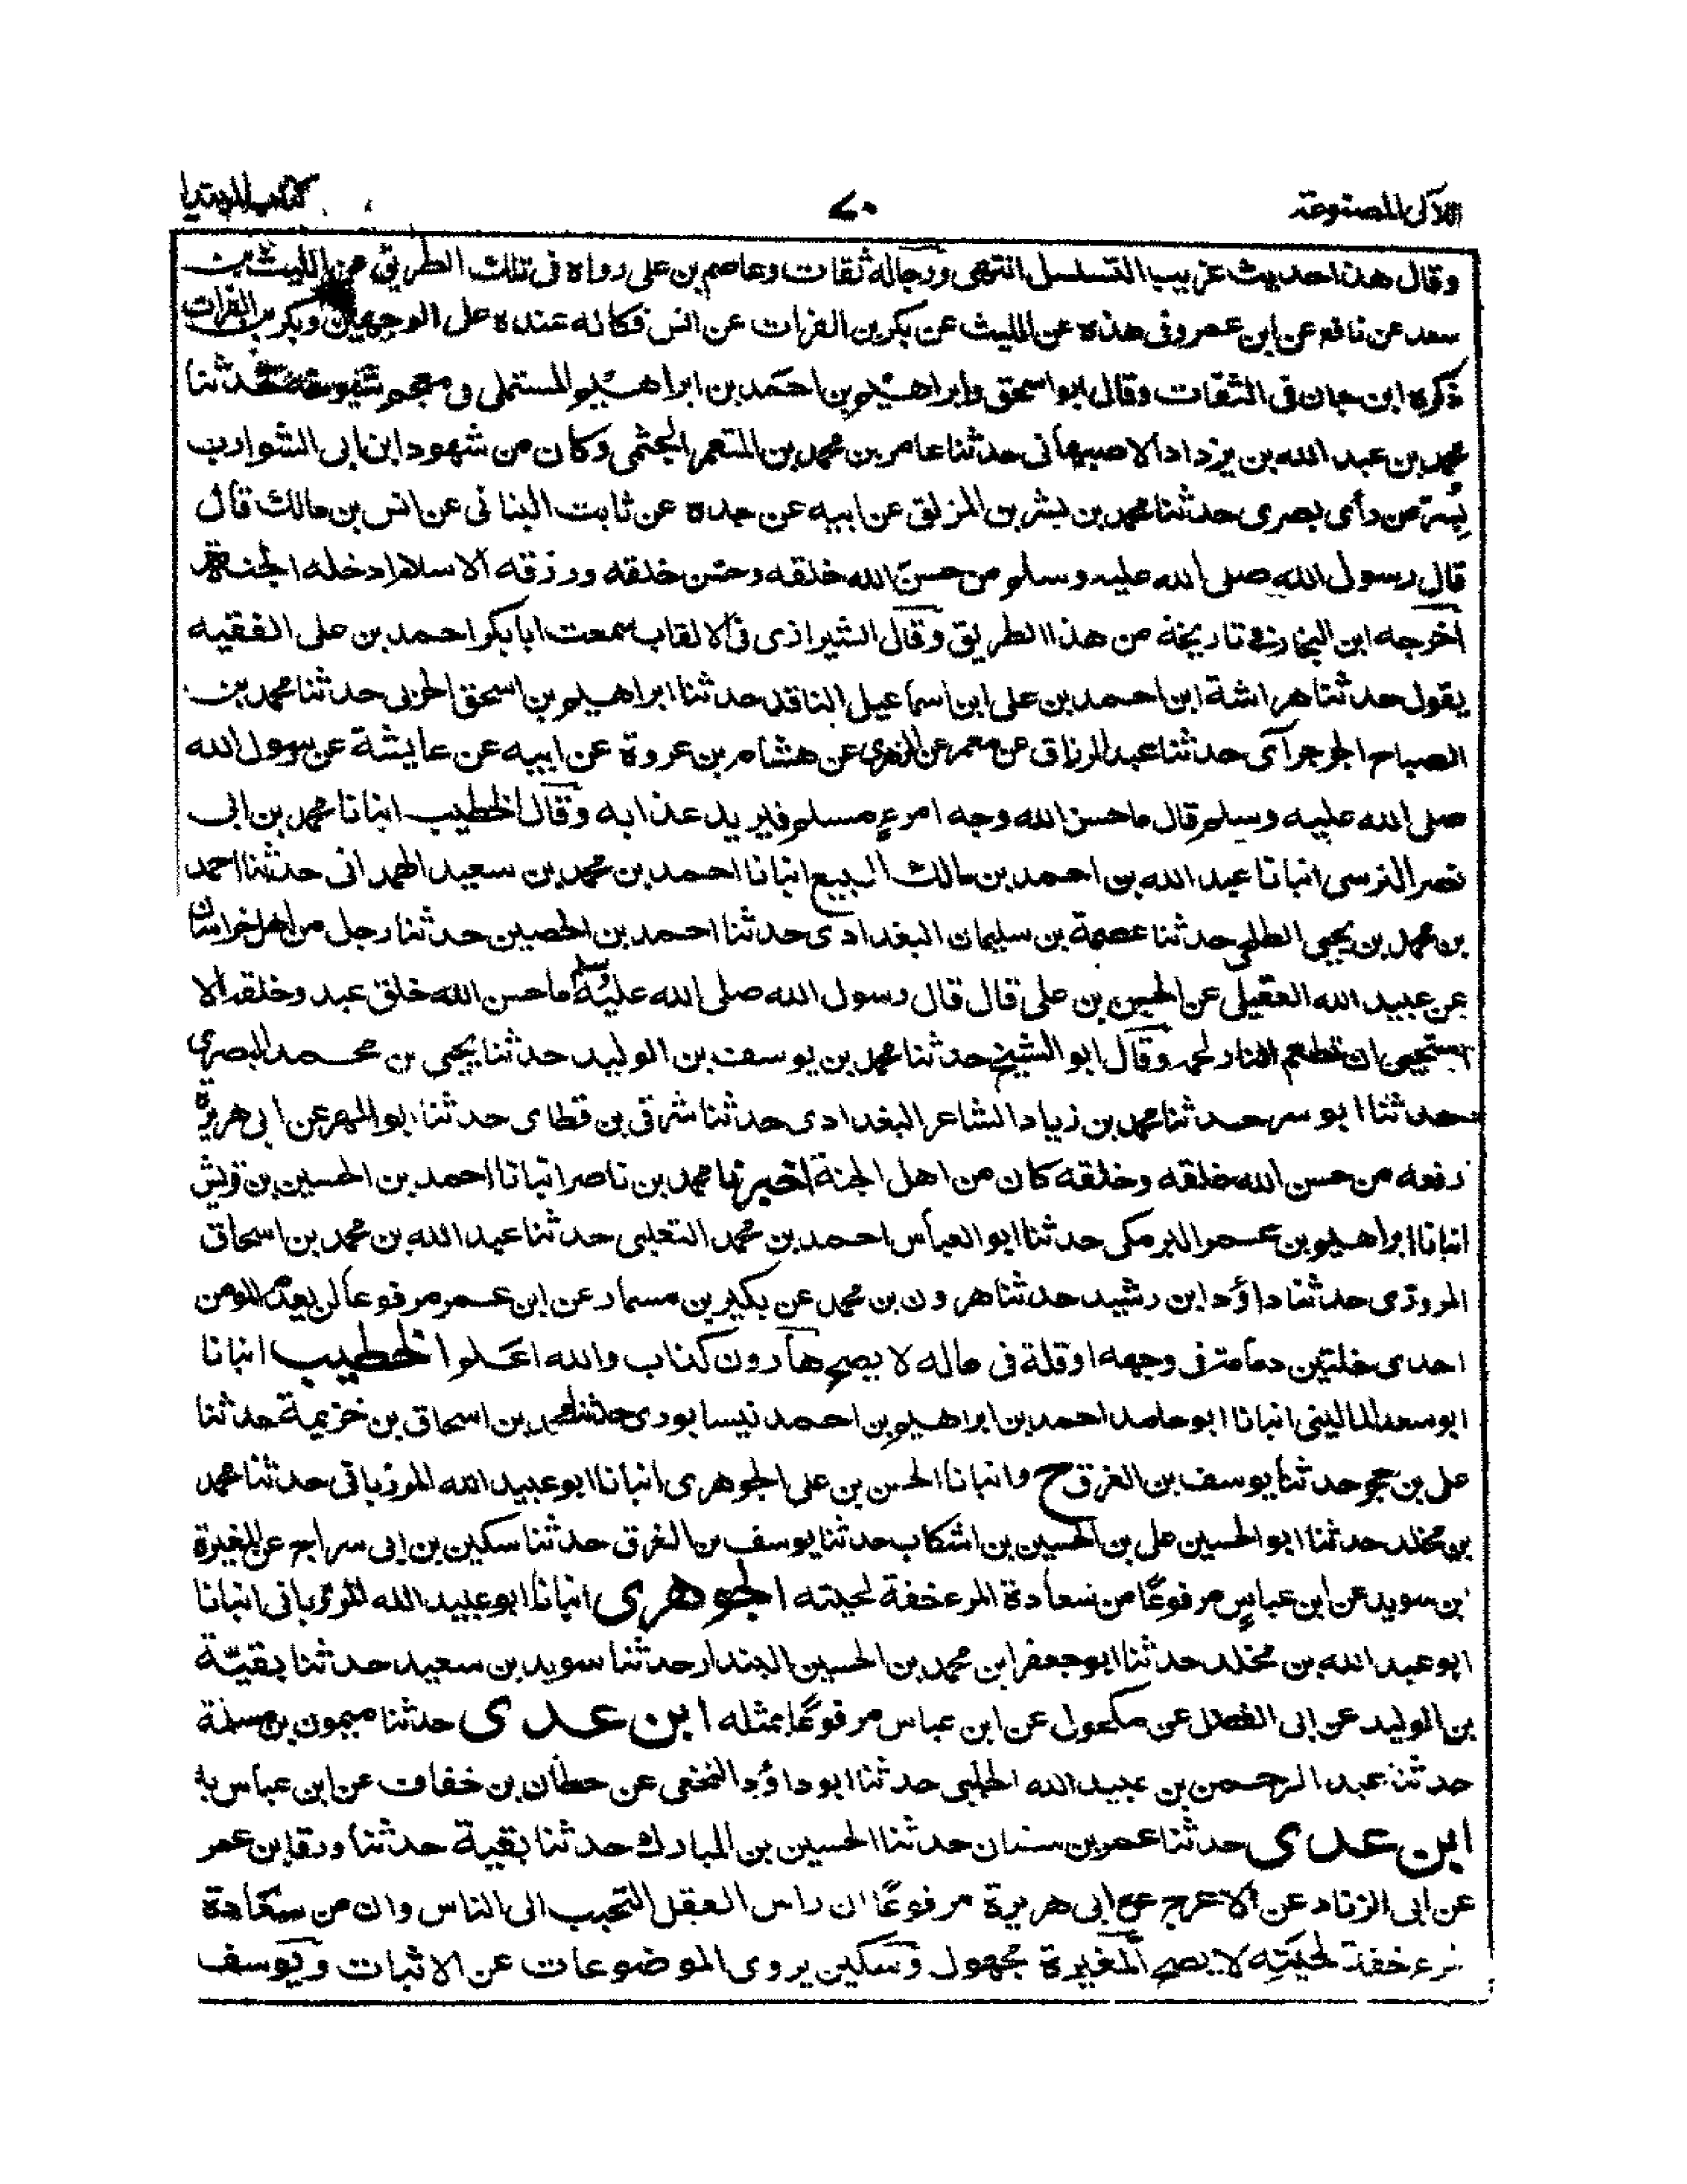 اللآلى المصنوعة
٧٠
كتاب المبتدا
وقال هذا حديث غريب التسلسل انتهى ورجاله ثقات وعاصم بن على رواه فى تلك الطريق عن الليث بن
سعد عن نافع عن ابن عمر وفى هذه عن الليث عن بكر بن الفرات عن انس فكانه عنده على الوجهين وبكر بن الفرات
ذكره ابن حبان فى الثقات وقال ابو اسحق وابراهيم بن احمد بن ابراهيم المستملى فى معجم شيوخه حدثنا
محمد بن عبد الله بن يزداد الاصبهانى حدثنا عامر بن محمد بن المتعمر الجثمى وكان من شهود ابن ابى الشوارب
بسر من رأى بصرى حدثنا محمد بن بشر بن المزلق عن ابيه عن جده عن ثابت البنانى عن انس بن مالك قال
قال رسول الله صلى الله عليه وسلم من حسن الله خلقه وحسن خلقه ورزقه الاسلام ادخله الجنة
اخرجه ابن النجار فى تاريخه من هذا الطريق وقال الشيرازى فى الالقاب سمعت ابا بكر احمد بن على الفقيه
يقول حدثنا هراشة ابن احمد بن على ابن اسماعيل الناقد حدثنا ابراهيم بن اسحق الحربى حدثنا محمد بن
الصباح الجرجرآى حدثنا عبد الرزاق عن معمر عن الزهرى عن هشام بن عروة عن ابيه عن عايشة عن رسول الله
صلى الله عليه وسلم قال ما حسن الله وجه امرء مسلم فيريد عذابه وقال الخطيب انبانا محمد بن ابى
نصر النرسى انبانا عبد الله بن احمد بن مالك البيع انبانا احمد بن محمد بن سعيد الهمدانى حدثنا احمد
بن محمد بن يحيى الطلحى حدثنا عصمة بن سليمان البغدادى حدثنا احمد بن الحصين حدثنا رجل من اهل خراسان
عن عبيد الله العقيلى عن الحسن بن على قال قال رسول الله صلى الله عليه وسلم ما حسن الله خلق عبد وخلقه الا
استحيى ان تطعم النار لحمه وقال ابو الشيخ حدثنا محمد بن يوسف بن الوليد حدثنا يحيى بن محمد البصرى
حدثنا ابو سر حدثنا محمد بن زياد الشاعر البغدادى حدثنا شرقى بن قطاى حدثنا ابو المهزم عن ابى هريرة
رفعه من حسن الله خلقه وخلقه كان من اهل الجنة اخبرنا محمد بن ناصر انبانا احمد بن الحسين بن قريش
انبانا ابراهيم بن عمر البرمكى حدثنا ابو العباس احمد بن محمد التعلبى حدثنا عبد الله بن محمد بن اسحاق
المروزى حدثنا داؤد ابن رشيد حدثنا هرون بن محمد عن بكير بن مسمار عن ابن عمر مرفوعا لن يعدم المومن
احدى خلتين دمامة فى وجهه او قلة فى ماله لا يصح هارون كذاب والله اعلم الخطيب انبانا
ابو سعد المالينى انبانا ابو حامد احمد بن ابراهيم بن احمد نيسابورى حدثنا محمد بن اسحاق بن خزيمة حدثنا
على بن حجر حدثنا يوسف بن الغرق ح وانبانا الحسن بن على الجوهرى انبانا ابو عبيد الله المرزبانى حدثنا محمد
بن مخلد حدثنا ابو الحسين على بن الحسين بن اشكاب حدثنا يوسف بن الغرق حدثنا سكين بن ابى سراج عن المغيرة
بن سويد عن ابن عباس مرفوعًا من سعادة المرء خفة لحيته الجوهرى انبانا ابو عبيد الله المرزبانى انبانا
ابو عبد الله بن مخلد حدثنا ابو جعفر ابن محمد بن الحسين البندار حدثنا سويد بن سعيد حدثنا بقيّة
بن الوليد عن ابى الفضل عن مكحول عن ابن عباس مرفوعًا بمثله ابن عدى حدثنا ميمون بن مسلمة
حدثنا عبد الرحمن بن عبيد الله الحلبى حدثنا ابو داؤد النخعى عن حطان بن خفاف عن ابن عباس به
ابن عدى حدثنا عمر بن سنان حدثنا الحسين بن المبارك حدثنا بقية حدثنا ورقا بن عمر
عن ابى الزناد عن الاعرج عن ابى هريرة مرفوعًا ان راس العقل التحبب الى الناس وان من سعادة
المرء خفة لحيته لا يصح المغيرة مجهول وسكين يروى الموضوعات عن الاثبات ويوسف